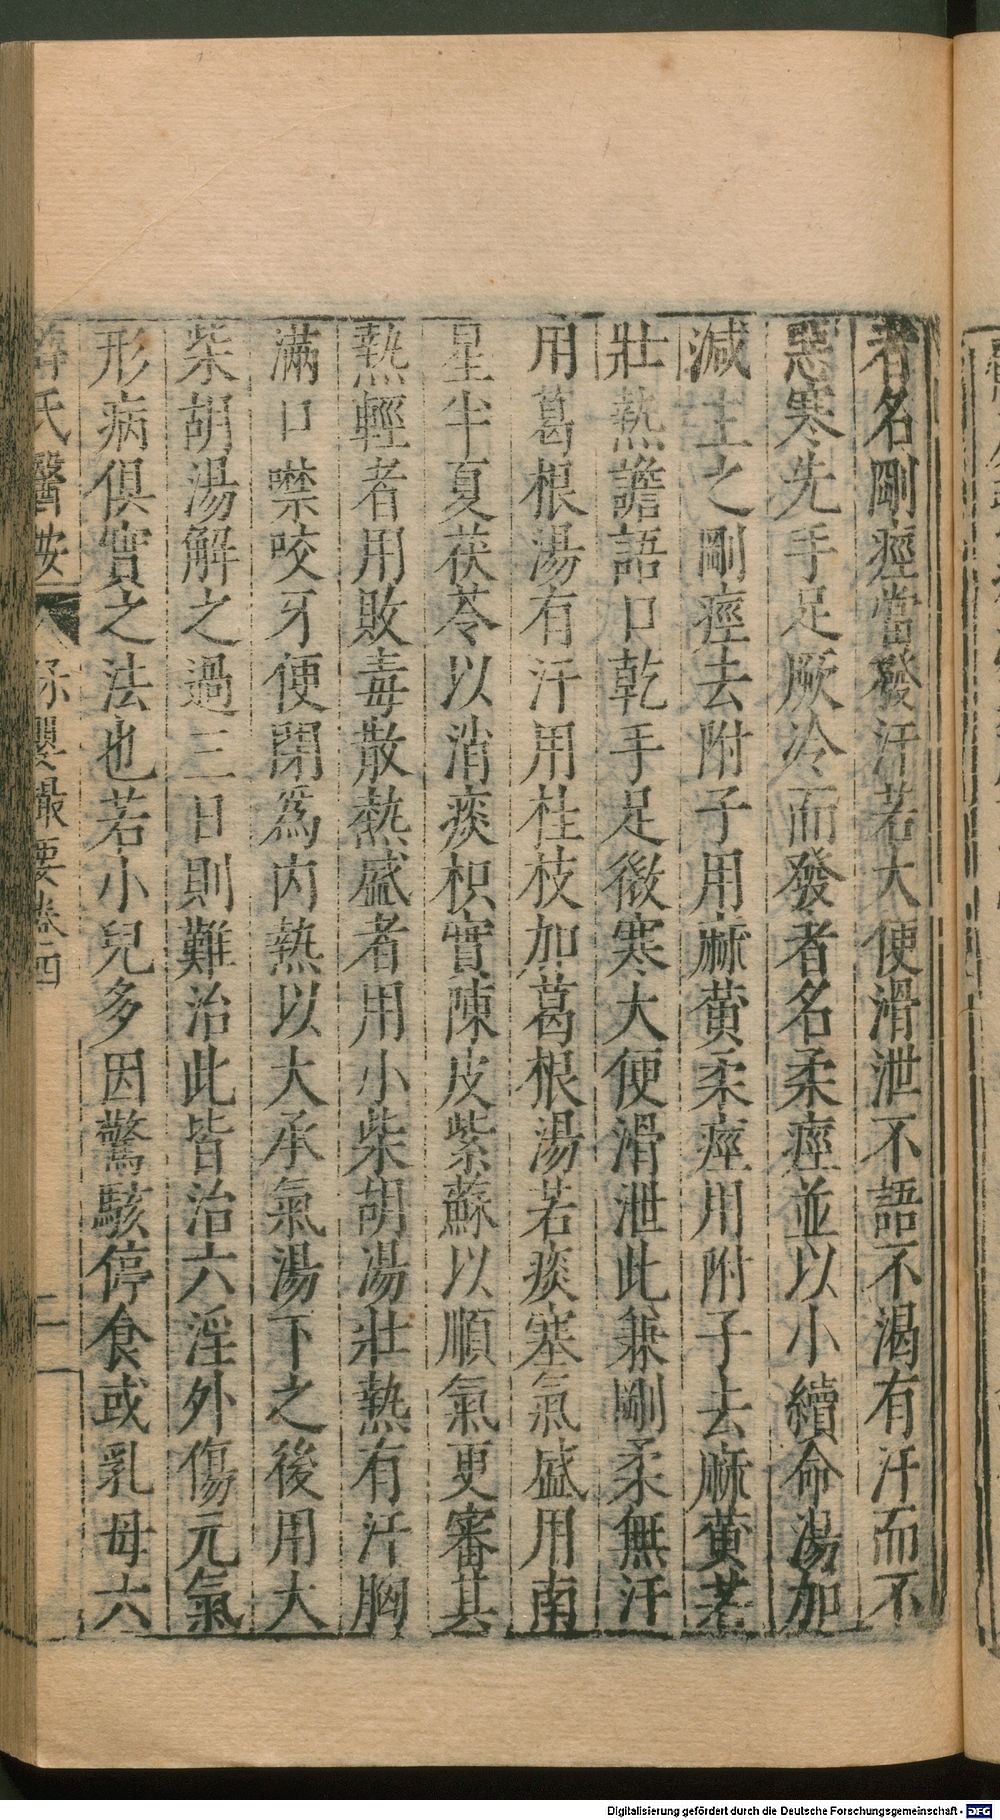 者名剛痙當發汗若大便滑泄不語不渴有汗而不
惡寒先手足厥冷而發者名柔痙並以小續命湯加
減主之剛痙去附子用麻黄柔痙用附子去麻黄若
壯熱譫語口乾手足微寒大便滑泄此兼剛柔無汗
用葛根湯有汗用桂枝加葛根湯若痰塞氣盛用南
星半夏茯苓以消痰枳實陳皮紫蘇以順氣更審其
熱輕者用敗毒散熱盛者用小柴胡湯壯熱有汗胸
滿口噤咬牙便閉爲内熱以大承氣湯下之後用大
柴胡湯解之過三日則難治此皆治六淫外傷元氣
形病俱實之法也若小兒多因驚駭停食或乳母六
薛氏醫按 保嬰撮要卷四 二
Digitalisierung gefördert durch die Deutsche Forschungsgemeinschaft - DFG